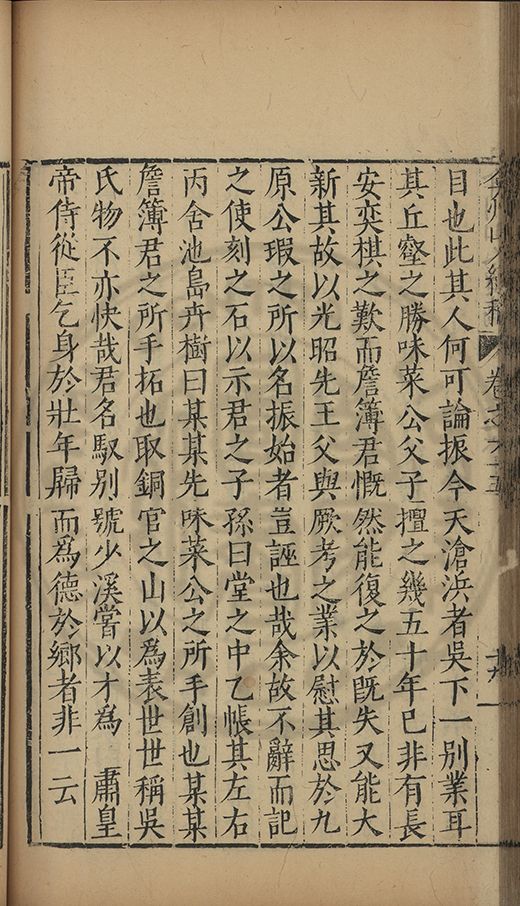 目也此其人何可論振今天滄浜者吳下一別業耳
其丘壑之勝味菜公父子擅之幾五十年已非有長
安奕棋之歎而詹簿君慨然能復之於旣失又能大
新其故以光昭先王父與厥考之業以慰其思於九
原公瑕之所以名振始者豈誣也哉余故不辭而記
之使刻之石以示君之子孫曰堂之中乙帳其左右
丙舍池島卉樹曰某某先味菜公之所手創也某某
詹簿君之所手拓也取銅官之山以爲表世世稱吳
氏物不亦快哉君名馭別號少溪嘗以才爲 肅皇
帝侍從臣乞身於壯年歸而爲德於鄉者非一云